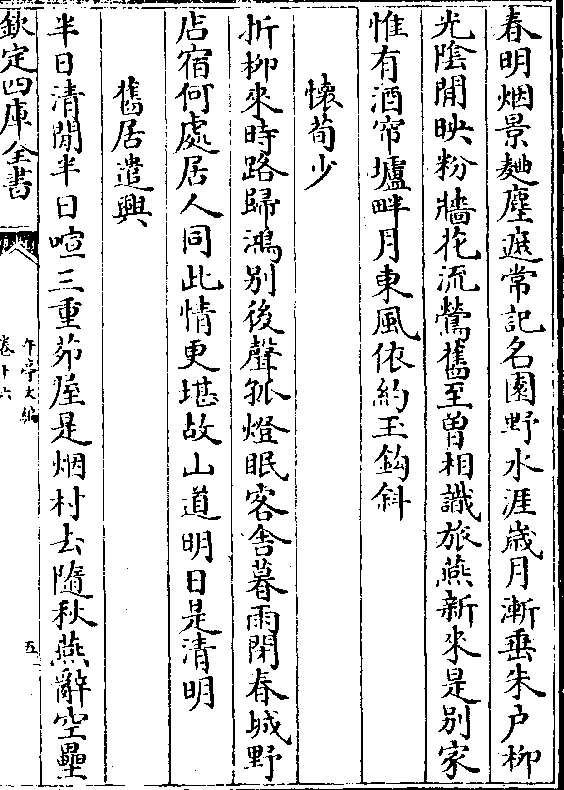 春明烟景麴塵遮常記名園野水涯歲月漸垂朱户栁
光陰閒映粉牆花流鶯舊至曽相識旅燕新來是别家
惟有酒帘壚畔月東風依約玉鈎斜
懷荀少
折栁來時路歸鴻别後聲孤燈眠客舎暮雨閉春城野
店宿何處居人同此情更堪故山道明日是清明
舊居遣興
半日清閒半日喧三重茆屋是烟村去隨秋燕辭空壘
欽定四庫全書
午亭文編
卷十六
五